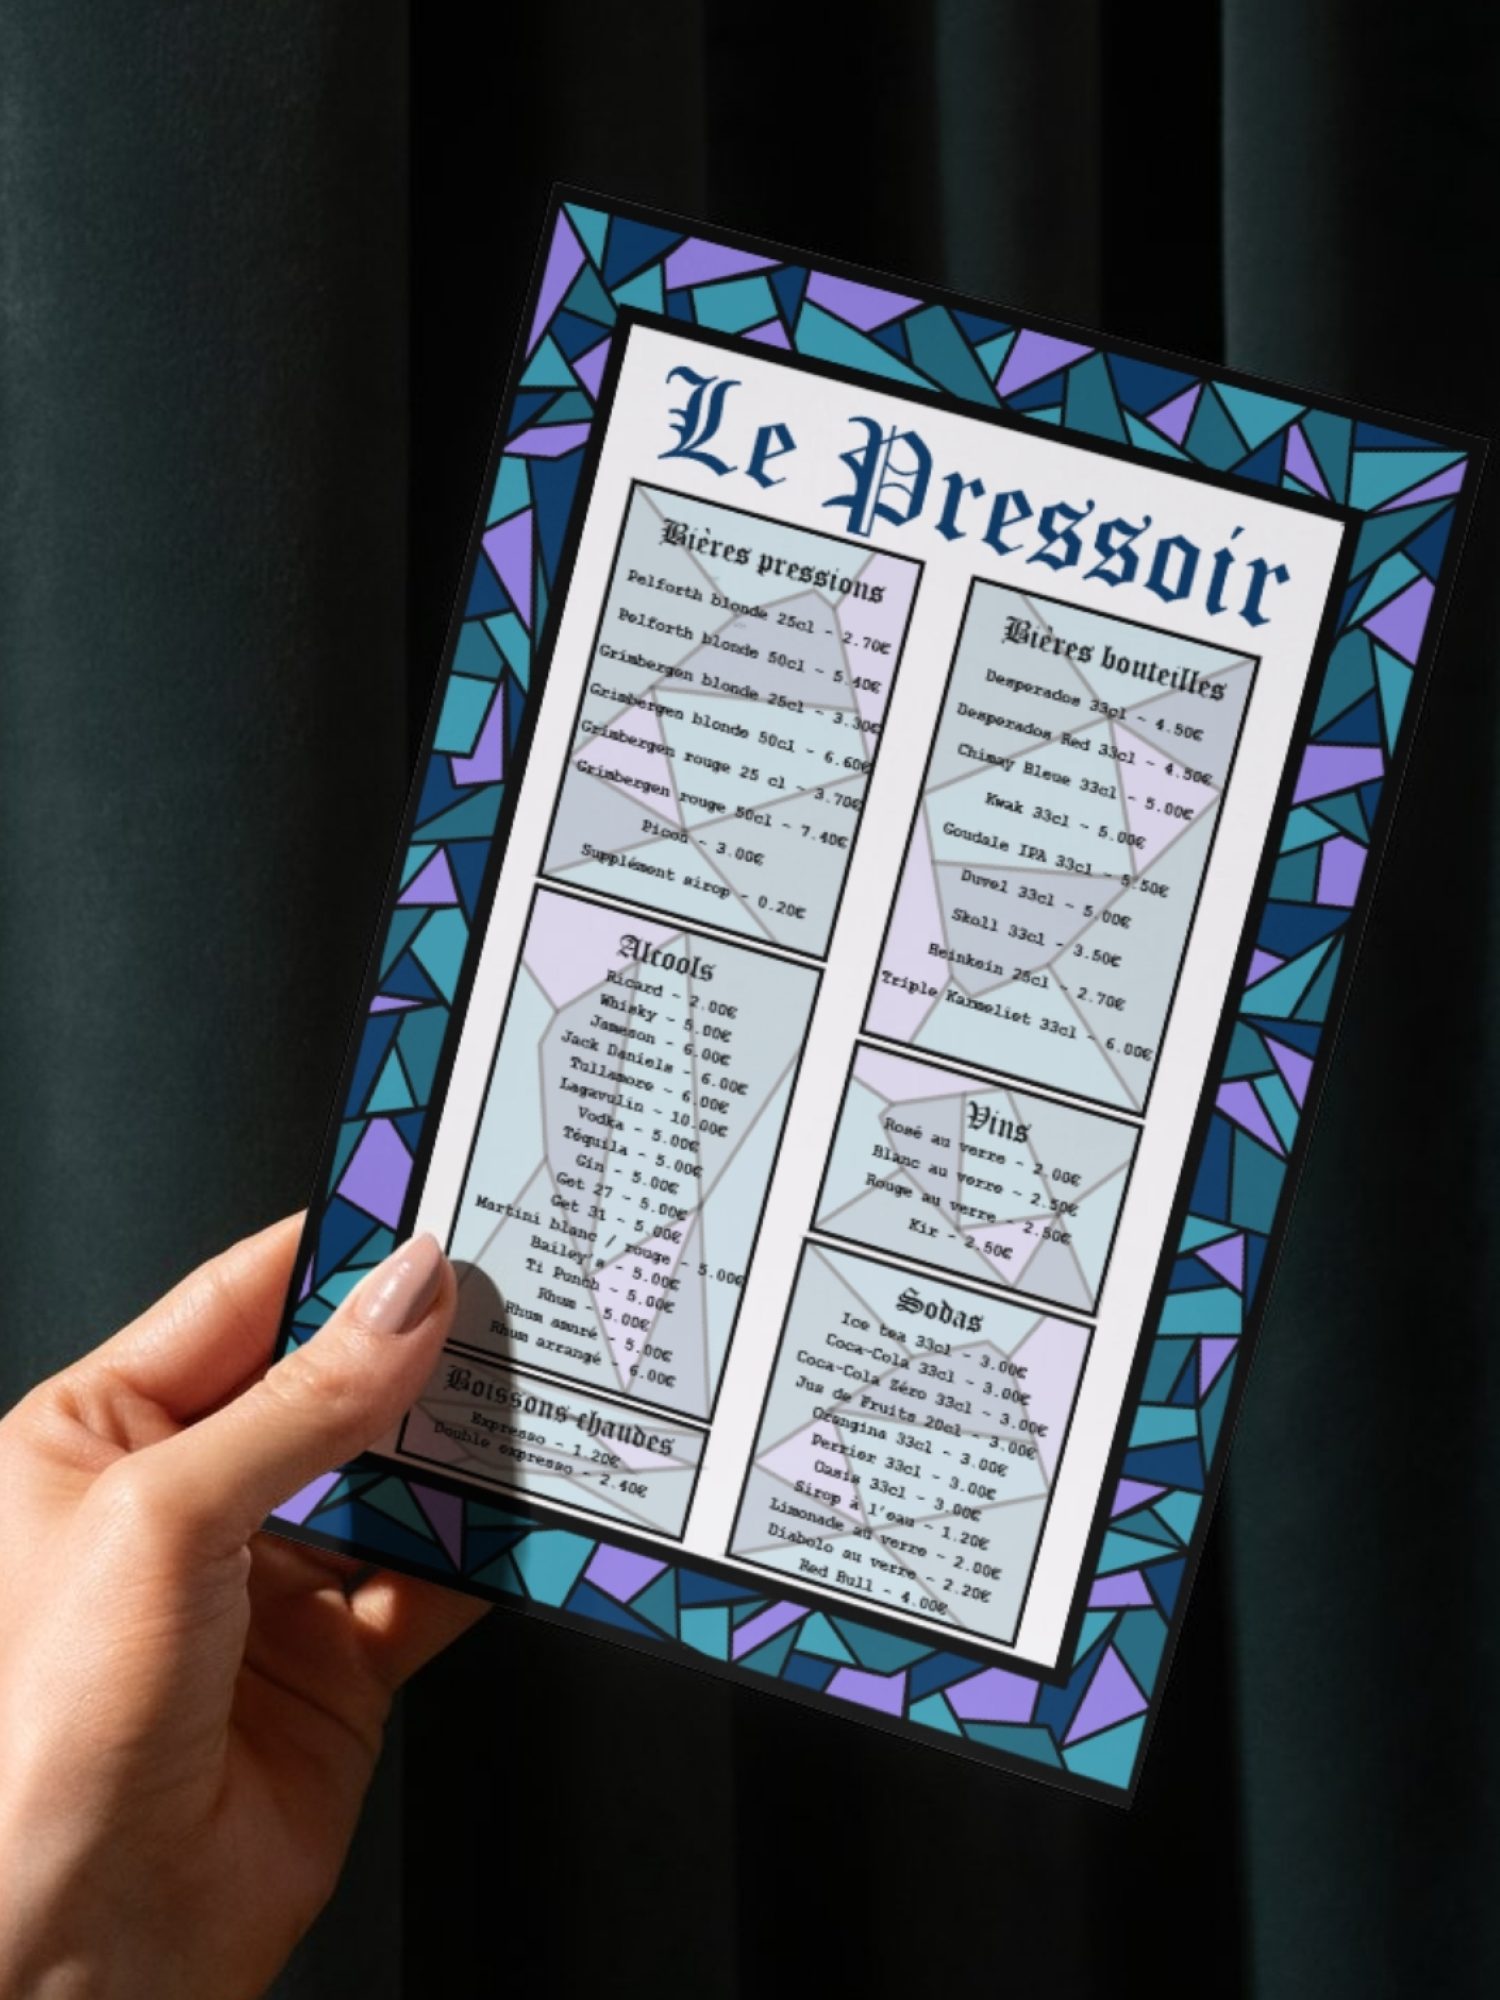 Le Pressoir
Bières pressions
Pelforth blonde 25cl - 2.70€
Pelforth blonde 50cl - 5.40€
Grimbergen blonde 25cl - 3.30€
Grimbergen blonde 50cl - 6.60€
Grimbergen rouge 25 cl - 3.70€
Grimbergen rouge 50cl - 7.40€
Picon - 3.00€
Supplément sirop - 0.20€
Alcools
Ricard - 2.00€
Whisky - 5.00€
Jameson - 6.00€
Jack Daniels - 6.00€
Tullamore - 6.00€
Lagavulin - 10.00€
Vodka - 5.00€
Téquila - 5.00€
Gin - 5.00€
Get 27 - 5.00€
Get 31 - 5.00€
Martini blanc / rouge - 5.00€
Bailey's - 5.00€
Ti Punch - 5.00€
Rhum - 5.00€
Rhum amnré - 5.00€
Rhum arrangé - 6.00€
Boissons chaudes
Expresso - 1.20€
Double expresso - 2.40€
Bières bouteilles
Desperados 33cl - 4.50€
Desperados Red 33cl - 4.50€
Chimay Bleue 33cl - 5.00€
Kwak 33cl - 5.00€
Goudale IPA 33cl - 5.50€
Duvel 33cl - 5.00€
Skoll 33cl - 3.50€
Heinkein 25cl - 2.70€
Triple Karmeliet 33cl - 6.00€
Vins
Rosé au verre - 2.00€
Blanc au verre - 2.50€
Rouge au verre - 2.50€
Kir - 2.50€
Sodas
Ice tea 33cl - 3.00€
Coca-Cola 33cl - 3.00€
Coca-Cola Zéro 33cl - 3.00€
Jus de Fruits 20cl - 3.00€
Orangina 33cl - 3.00€
Perrier 33cl - 3.00€
Oasis 33cl - 3.00€
Sirop à l'eau - 1.20€
Limonade au verre - 2.00€
Diabolo au verre - 2.20€
Red Bull - 4.00€